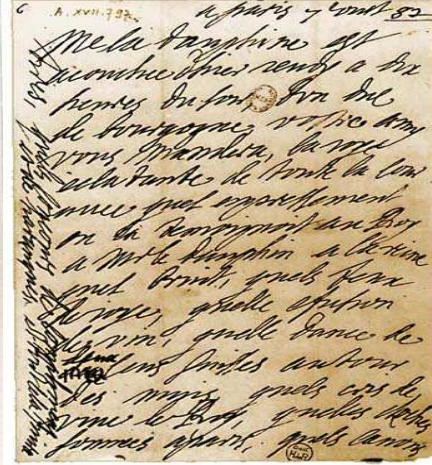 6 A. XVII. 792.
a paris 7 aoust 82
Me la dauphine est
acouchee hier jeudy a dix
heures du soir d'un duc
de bourgogne, vostre amy
vous mandera, la joye
eclatante de toute la cour
avec quel empressement
on la temoignoit au Roy
a Mr le dauphin a la reine
quel bruit, quels feux
de joye, quelle efusion
de vin, quelle dance de
suisses autour
des muys quels cris de
vive le Roy, quelles cloches
sonnees a paris, quels canons
tirés, quels concours de
et de harangues, et